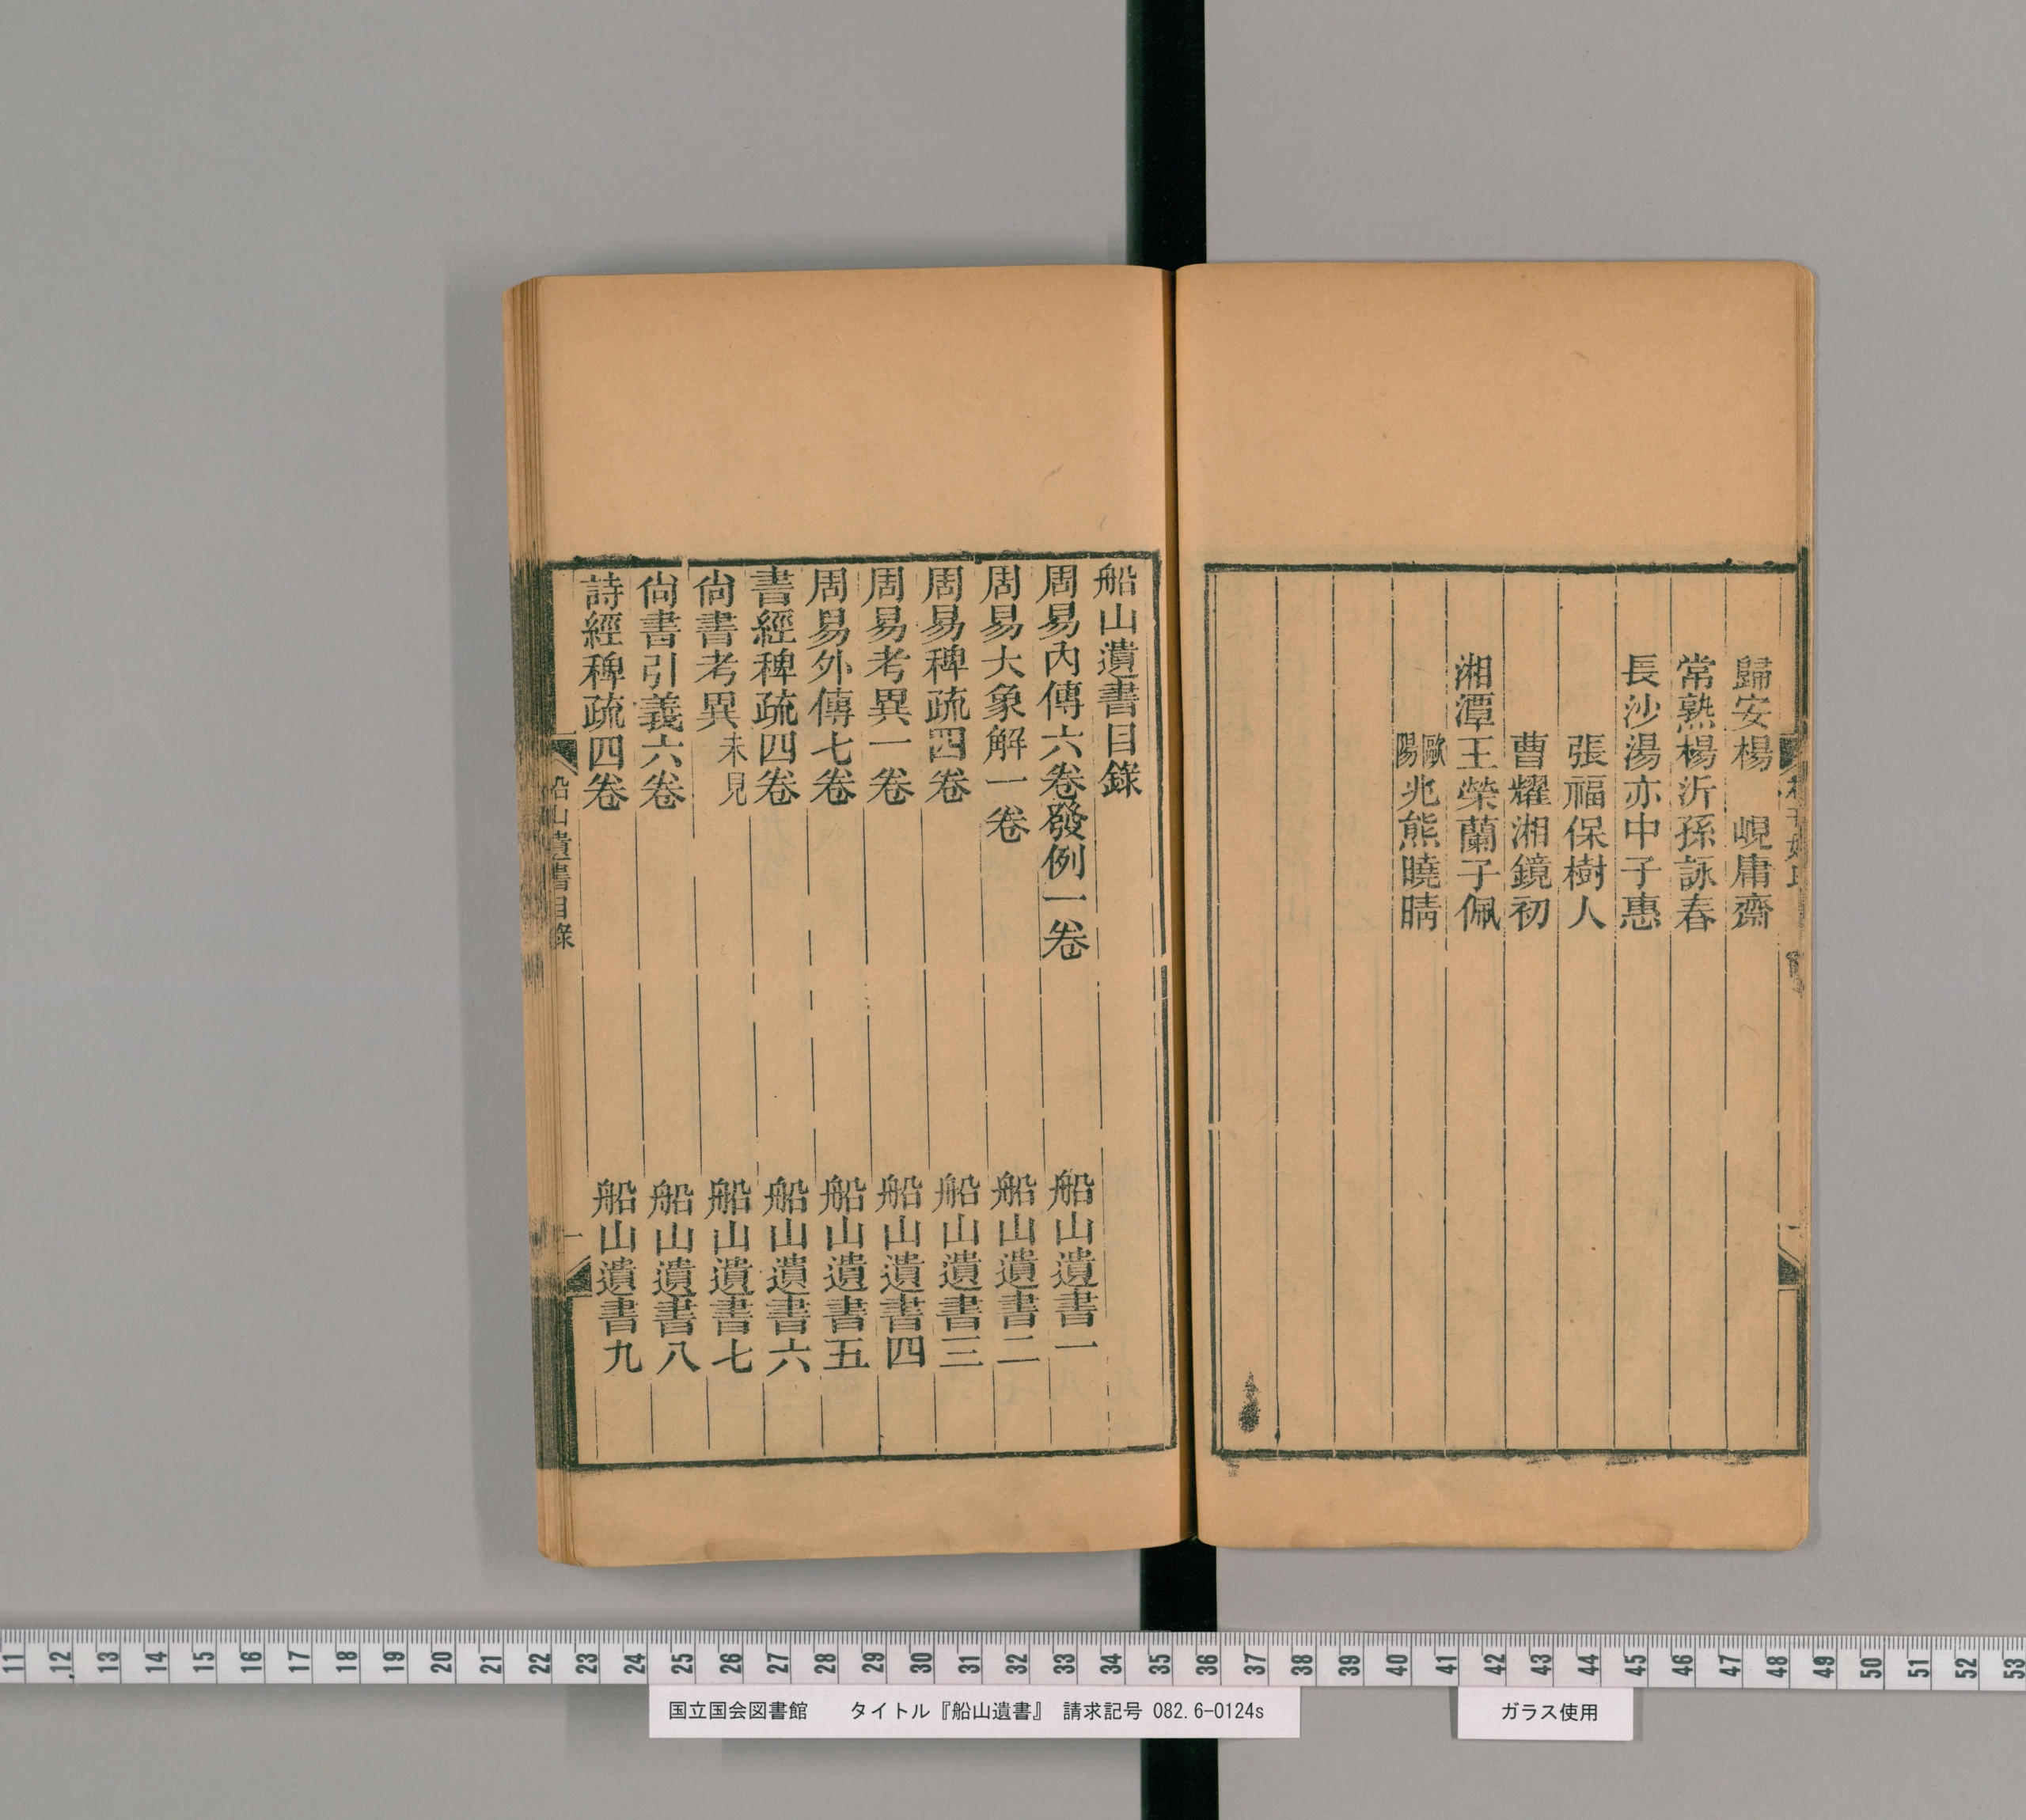 歸安楊　峴庸齋
常熟楊沂孫詠春
長沙湯亦中子惠
張福保樹人
曹耀湘鏡初
湘潭王榮蘭子佩
歐陽兆熊曉晴
船山遺書目錄
周易內傳六卷發例一卷　船山遺書一
周易大象解一卷　船山遺書二
周易稗疏四卷　船山遺書三
周易考異一卷　船山遺書四
周易外傳七卷　船山遺書五
書經稗疏四卷　船山遺書六
尙書考異未見　船山遺書七
尙書引義六卷　船山遺書八
詩經稗疏四卷　船山遺書九
船山遺書目錄　一
11 12 13 14 15 16 17 18 19 20 21 22 23 24 25 26 27 28 29 30 31 32 33 34 35 36 37 38 39 40 41 42 43 44 45 46 47 48 49 50 51 52 53
国立国会図書館　タイトル『船山遺書』　請求記号 082.6-0124s
ガラス使用